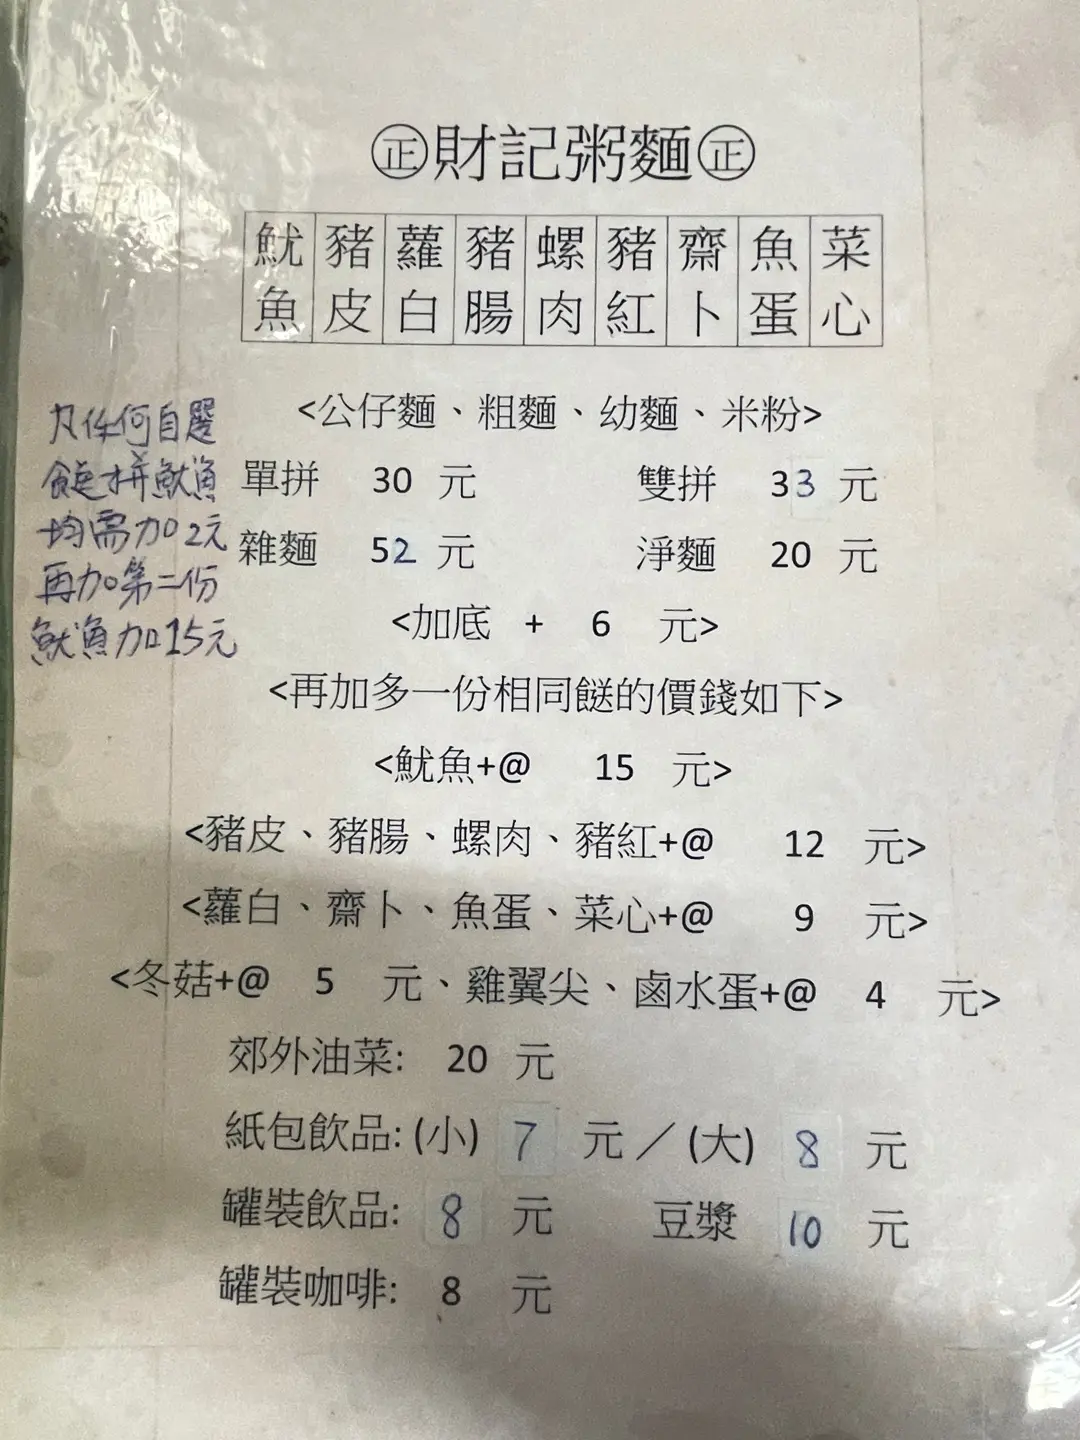 ㊣財記粥麵㊣
魷魚 豬皮 蘿白 豬腸 螺肉 豬紅 齋卜 魚蛋 菜心
<公仔麵、粗麵、幼麵、米粉>
單拼 30 元 雙拼 33 元
雜麵 52 元 淨麵 20 元
<加底 + 6 元>
<再加多一份相同餸的價錢如下>
<魷魚+@ 15 元>
<豬皮、豬腸、螺肉、豬紅+@ 12 元>
<蘿白、齋卜、魚蛋、菜心+@ 9 元>
<冬菇+@ 5 元、雞翼尖、鹵水蛋+@ 4 元>
郊外油菜: 20 元
紙包飲品: (小) 7 元／(大) 8 元
罐裝飲品: 8 元 豆漿 10 元
罐裝咖啡: 8 元
凡任何自選
餸拼魷魚
均需加2元
再加第二份
魷魚加15元